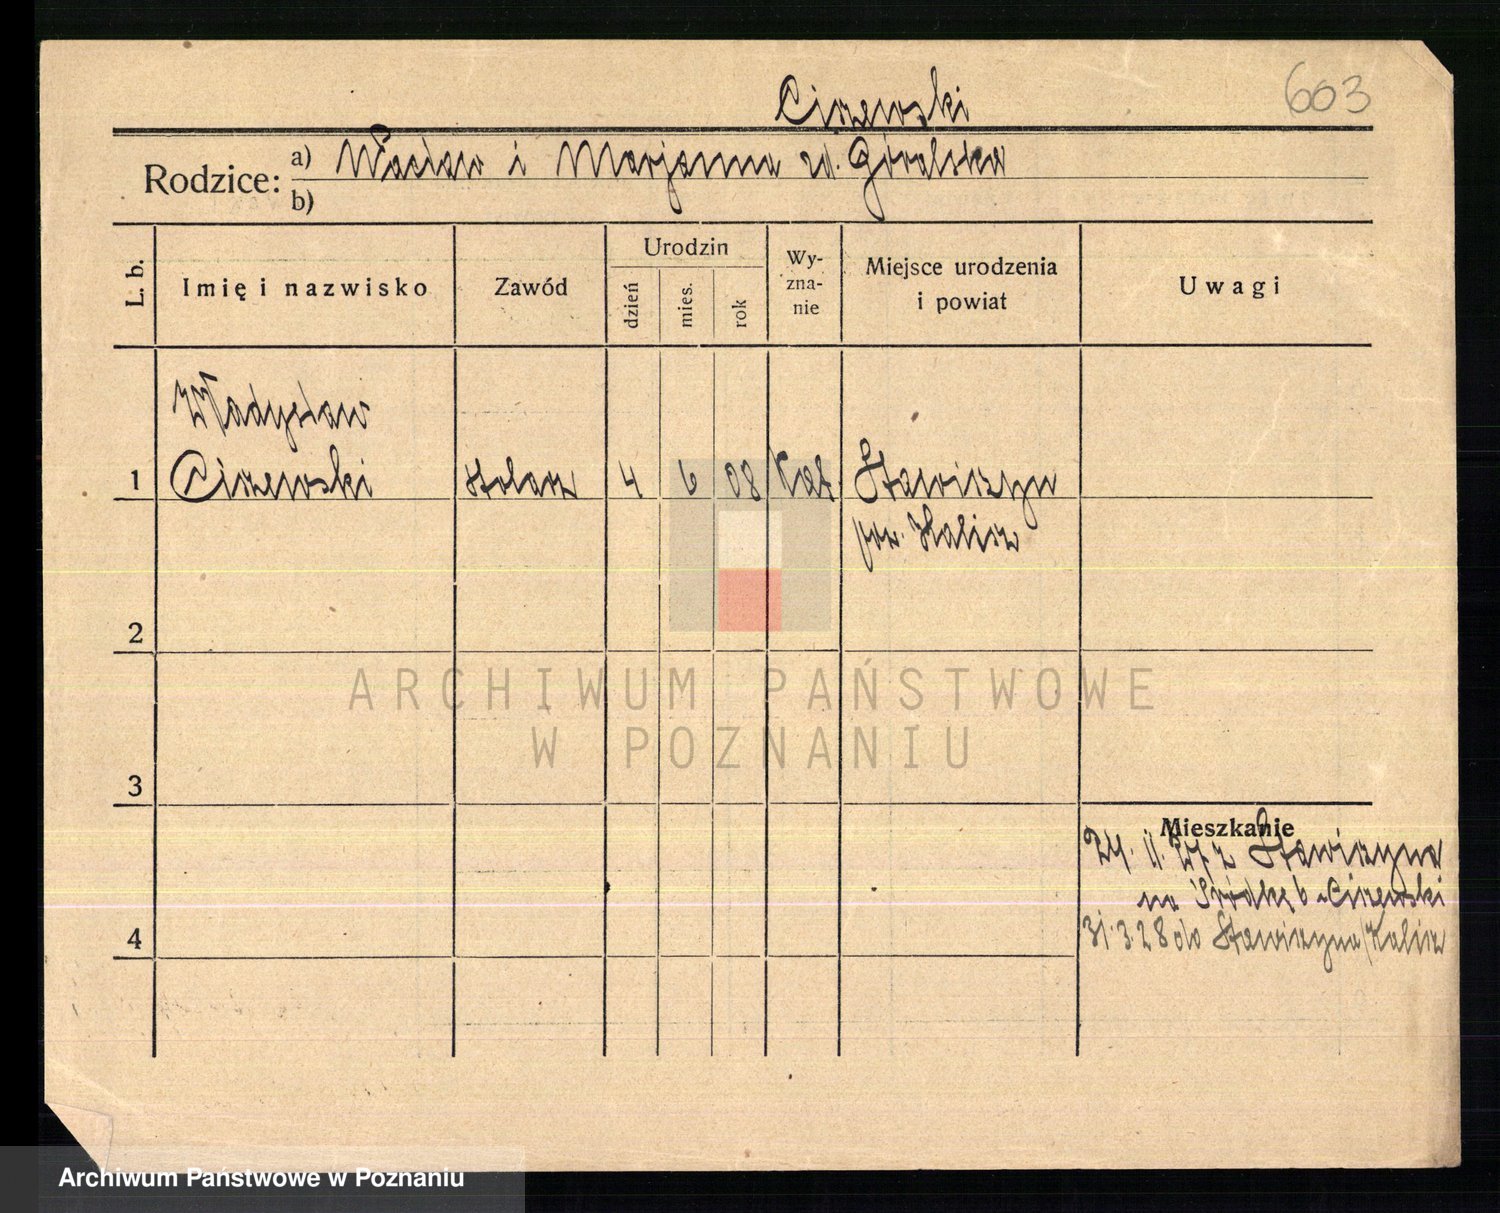 603
Ciszewski
Rodzice: a) Wacław i Marjanna zd. Góralska
b)
L. b. Imię i nazwisko Zawód Urodzin dzień mies. rok Wy-zna-nie Miejsce urodzenia i powiat Uwagi
Władysław
1 Ciszewski stolarz 4 6 08 kat Stawiszyn
pow. Kalisz
2
ARCHIWUM PAŃSTWOWE
W POZNANIU
3
Mieszkanie
24. 11. 27 z Stawiszyna
na Śródkę 6 Ciszewski
4
31.3.28 do Stawiszyna/Kalisz
Archiwum Państwowe w Poznaniu